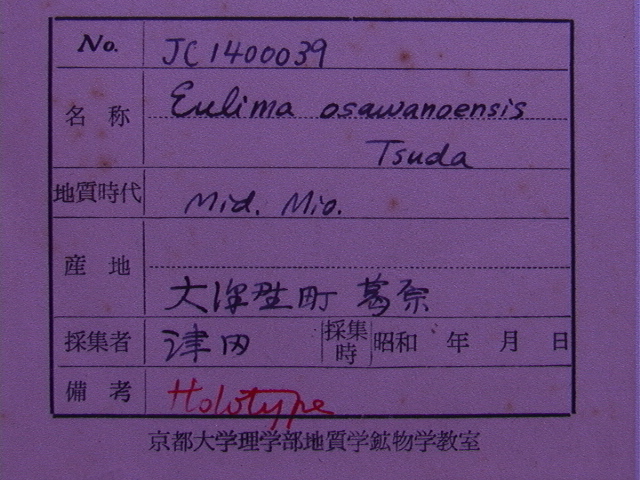 No. JC1400039
名称 Eulima osawanoensis
Tsuda
地質時代 Mid. Mio.
産地
大沢野町 葛原
採集者 津田 採集時 昭和 年 月 日
備考 Holotype
京都大学理学部地質学鉱物学教室